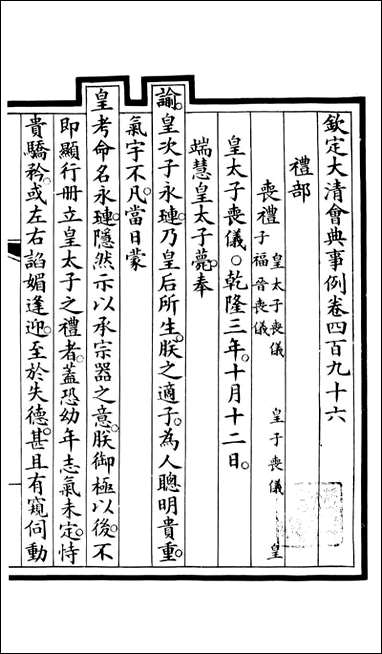 欽定大清會典事例卷四百九十六
禮部
喪禮 皇太子喪儀 皇子喪儀 皇
子福晉喪儀
皇太子喪儀○乾隆三年十月十二日。
端慧皇太子薨。奉
諭。皇次子永璉。乃皇后所生。朕之適子。為人聰明貴重。
氣宇不凡。當日蒙
皇考命名永璉。隱然示以承宗器之意。朕御極以後。不
即顯行冊立皇太子之禮者。蓋恐幼年志氣未定。恃
貴驕矜。或左右諂媚逢迎。至於失德。甚且有窺伺動